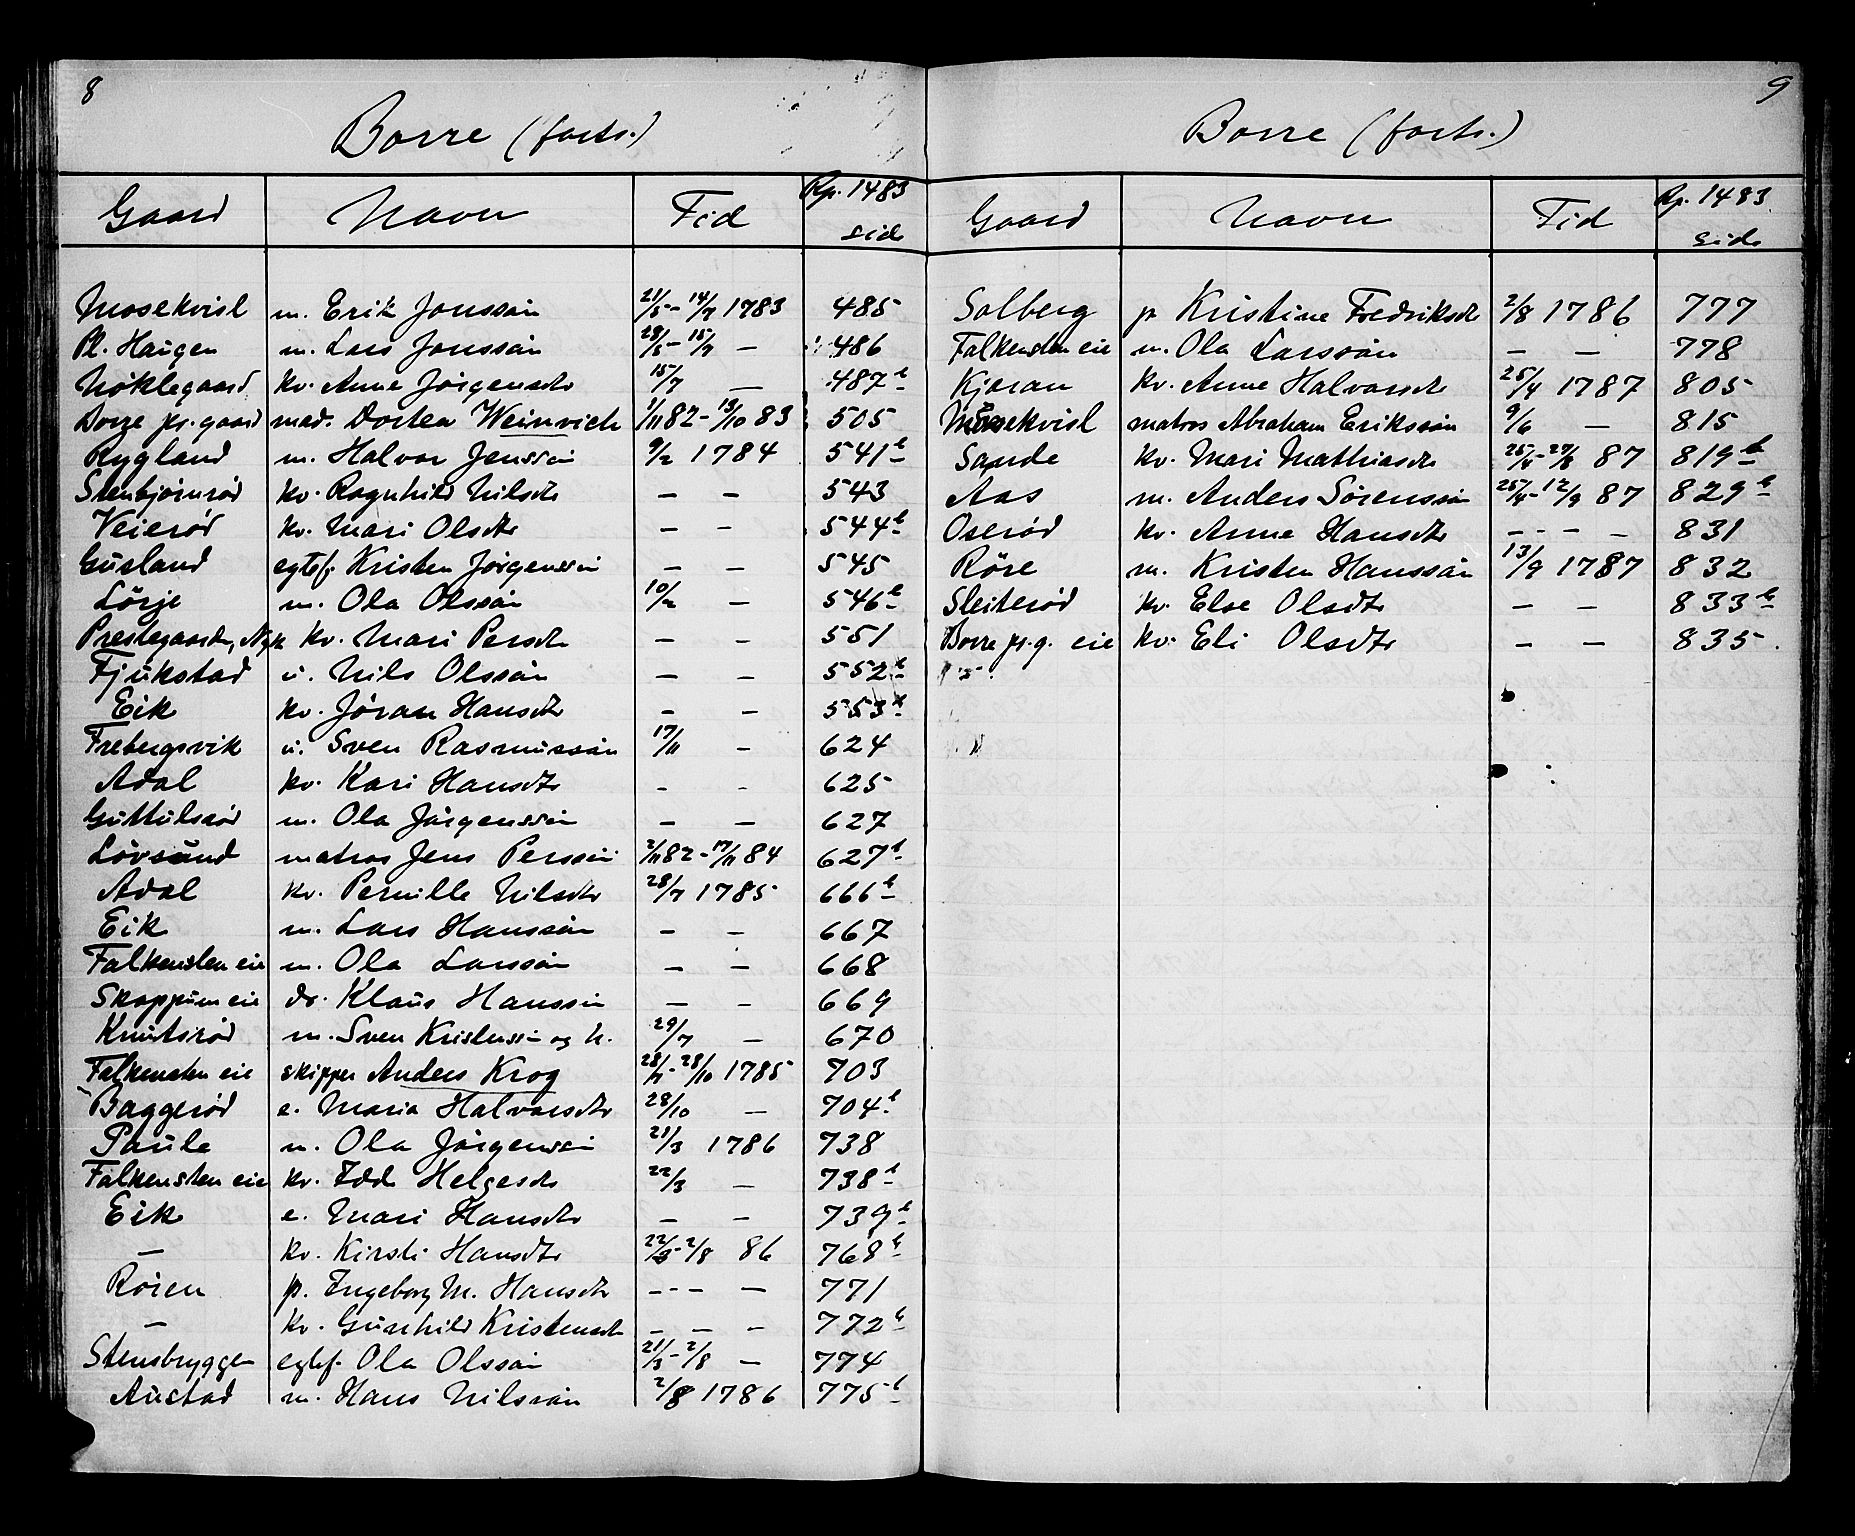 8
Borre (forts.)
Gaard Navn Tid Rp. 1483 side
Mosekvisl m. Erik Jonssøn 21/5-14/7 1783 485
Pl. Haugen m. Lars Jonssøn 28/5-15/7 — 486
Nøklegaard kv. Anne Jørgensdtr 15/7 — 487b
Borre pr.gaard mad. Dortea Weinvich 1/11 82-13/10 83 505
Rygland m. Halvor Jenssøn 9/2 1784 541b
Stenbjørnrød kv. Ragnhild Nilsdtr — — 543
Veierød kv. Mari Olsdtr — — 544b
Gusland egtef. Kristen Jørgenssøn — — 545
Lørje m. Ola Olssøn 10/2 — 546b
Prestegaarden, Nyk kv. Mari Persdtr — — 551
Fjukstad u. Nils Olssøn — — 552b
Eik kv. Jøran Hansdtr — — 553b
Frebergsvik u. Sven Rasmussøn 17/11 — 624
Adal kv. Kari Hansdtr — — 625
Guttulsrød m. Ola Jørgenssøn — — 627
Løvsund matros Jens Perssøn 2/11 82-17/11 84 627b
Adal kv. Pernille Nilsdtr 28/7 1785 666b
Eik m. Lars Hanssøn — — 667
Falkensten eie m. Ola Larssøn — — 668
Skoppum eie dr. Klaus Hanssøn — — 669
Knutsrød m. Sven Kristenssøn og h. 29/7 — 670
Falkensten eie skipper Anders Krog 28/7-28/10 1785 703
Baggerød e. Maria Halvorsdtr 28/10 — 704b
Paule m. Ola Jørgenssøn 21/3 1786 738
Falkensten eie kv. Idde Helgesdtr 22/3 — 738b
Eik e. Mari Hansdtr — — 739b
— kv. Kirsti Hansdtr 22/3-2/8 86 768b
Røren p. Ingeborg M. Hansdtr --- — 771
— kv. Gunhild Kristensdtr — — — 772b
Stensbryggen egtef. Ola Olssøn 21/3-2/8 — 774
Austad m. Hans Nilssøn 2/8 1786 775b
9
Borre (forts.)
Gaard Navn Tid Rp. 1483 side
Solberg p Kristine Fredriksdtr 2/8 1786 777
Falkensten eie m. Ola Larssøn — — 778
Kjeran kv. Anne Halvorsdtr 25/4 1787 805
Mosekvisl matros Abraham Erikssøn 9/6 — 815
Sande kv. Mari Mathiasdtr 819b
Aas m. Anders Sørenssøn 25/4-12/9 87 829b
Oserød kv. Anne Hansdtr --- — 831
Røre m. Kristen Hanssøn 13/9 1787 832
Sleiterød kv. Else Olsdtr — — 833b
Borre pr.g. eie kv. Eli Olsdtr — — 835